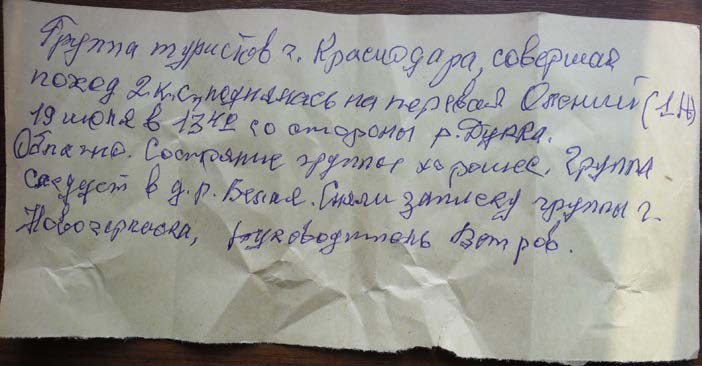 Группа туристов г. Краснодара, совершая
поход 2 к.с, поднялась на перевал Олений (1А)
19 июля в 13 40 со стороны р. Дукка.
Облачно. Состояние группы хорошее. Группа
следует в д.р. Белая. Сняли записку группы г.
Новочеркасска, руководитель Ветров.